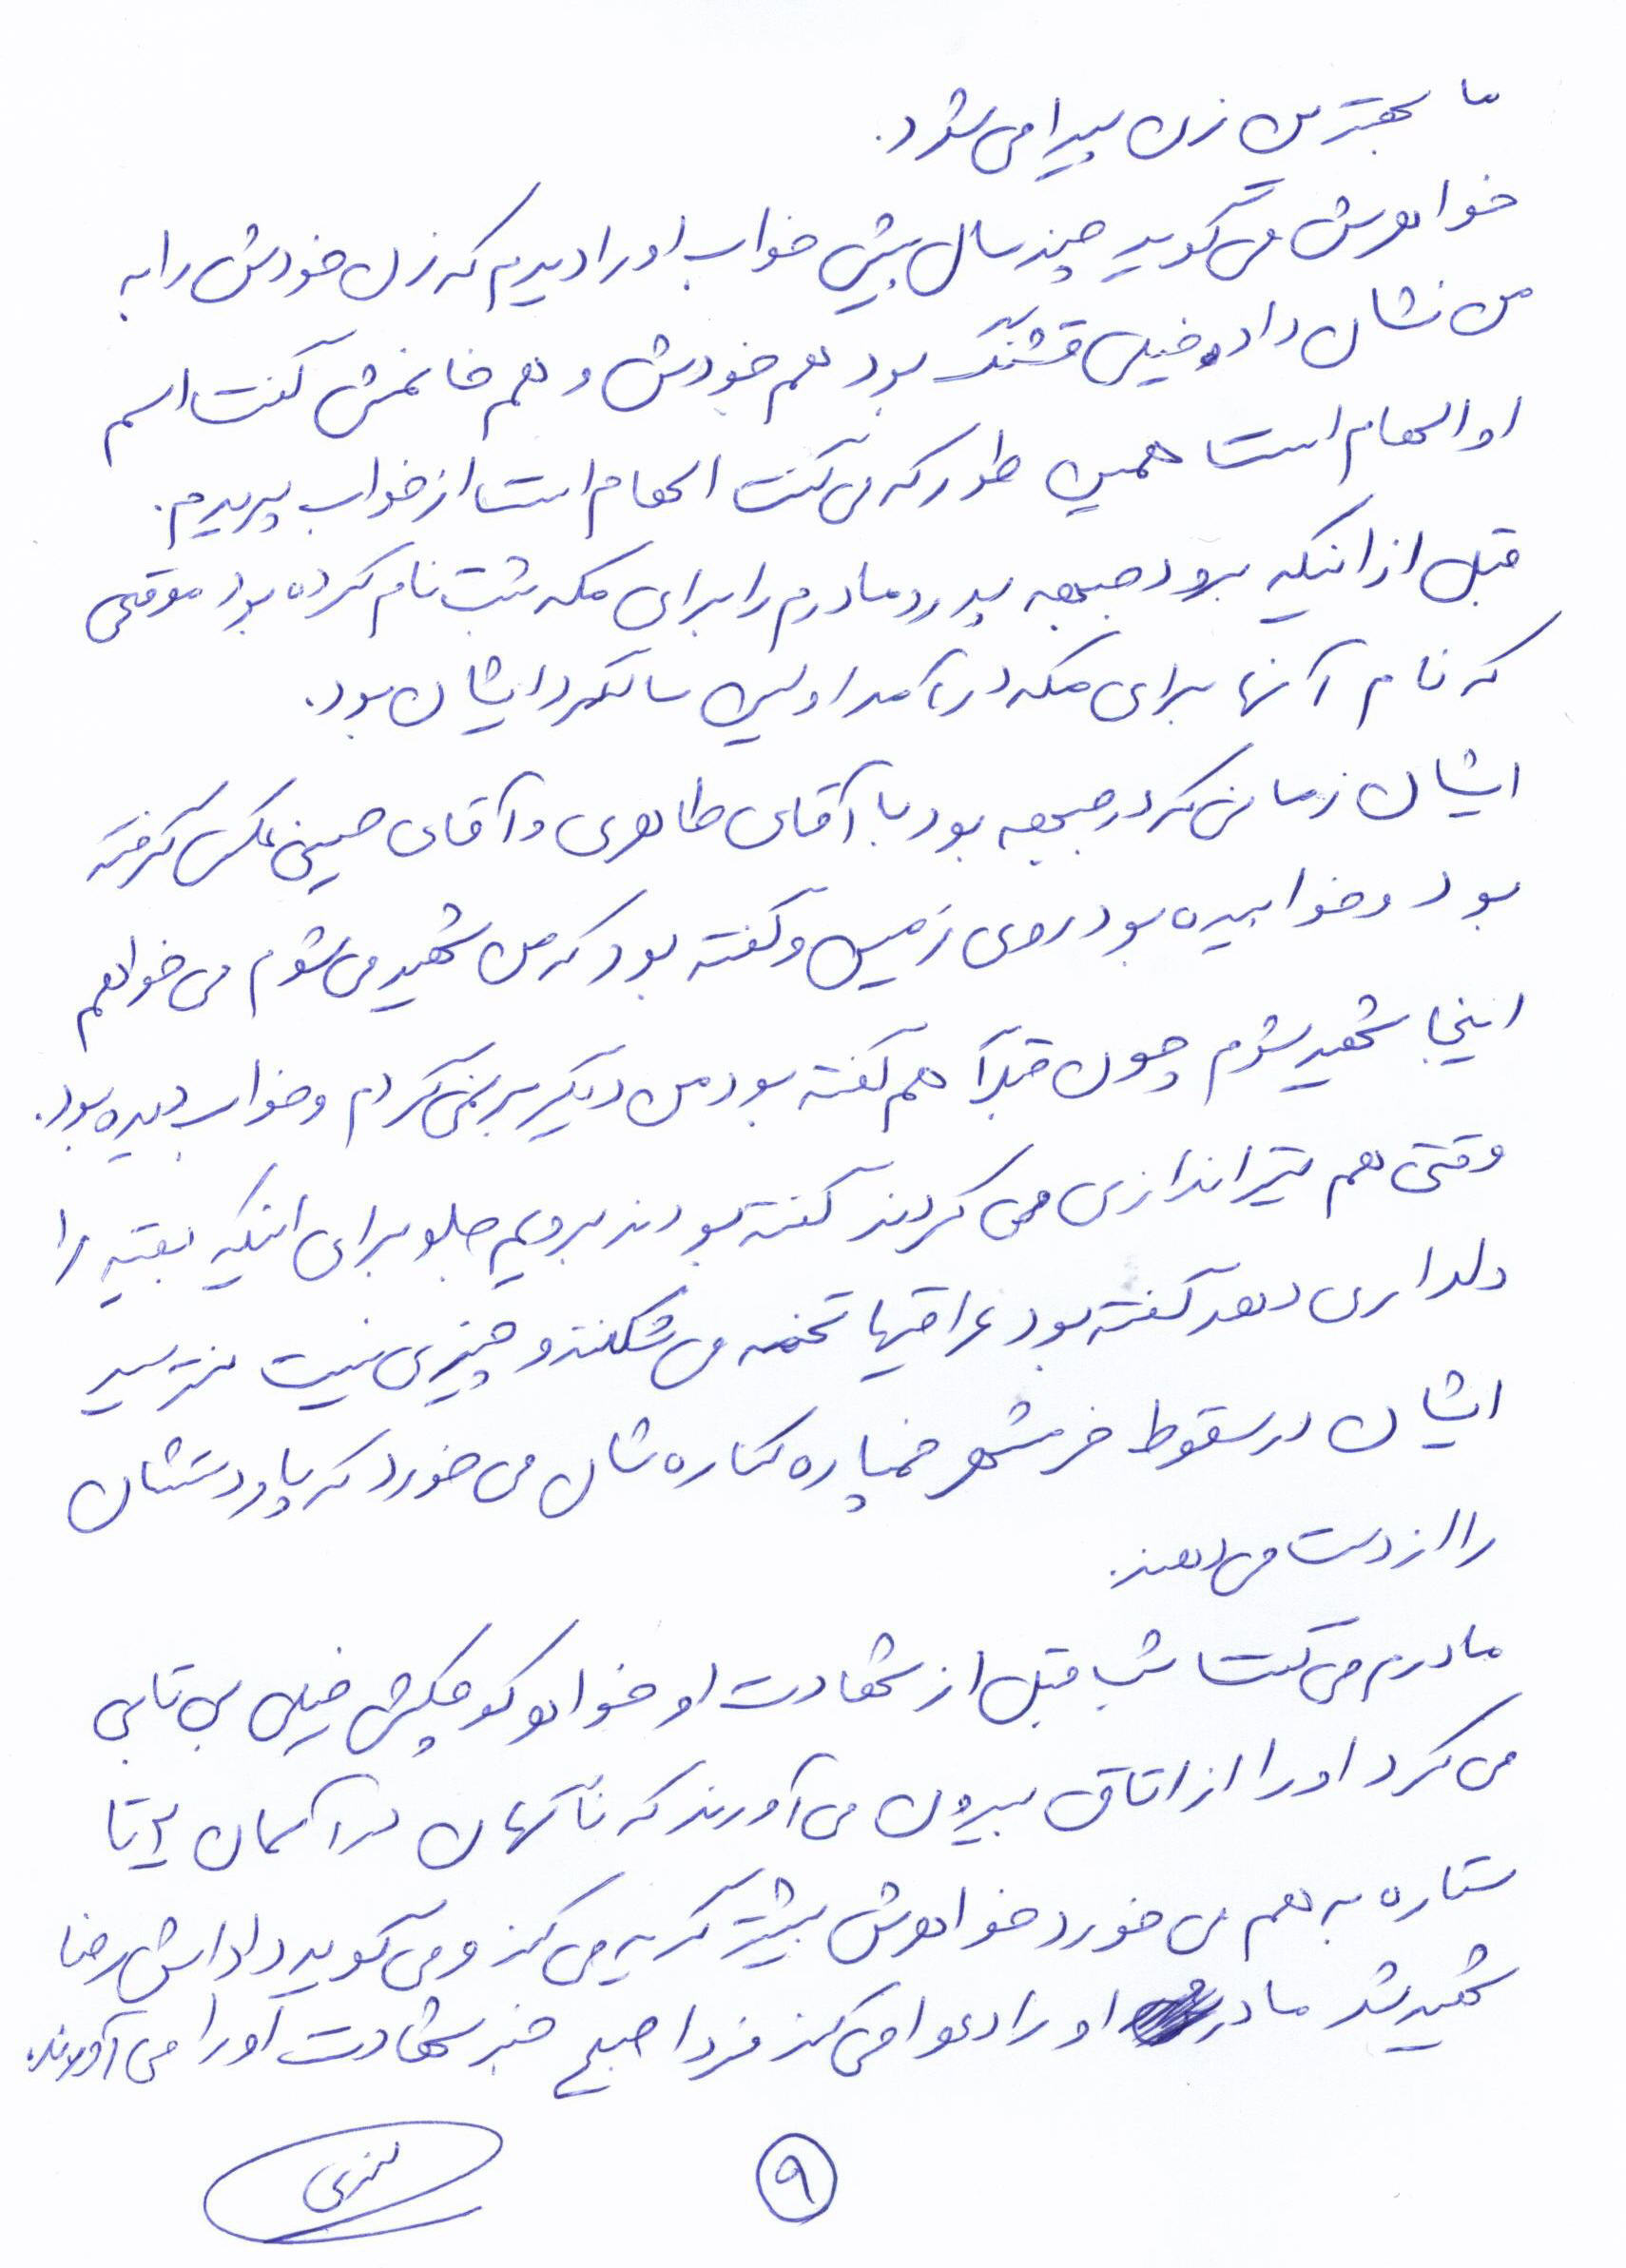 ما بهترین زن پیدا می شود.
خواهرش می گوید چند سال پیش خواب او را دیدم که زن خودش را به
من نشان داد. خیلی قشنگ بود هم خودش و هم خانمش گفت اسم
او الهام است همین طور که می گفت الهام است از خواب پریدم.
قبل از اینکه برود جبهه پدر و مادرم را برای مکه ثبت نام کرده بود موقعی
که نام آنها برای مکه درآمد اولین سالگرد ایشان بود.
ایشان زمانی که در جبهه بود با آقای طاهری و آقای حسینی عکس گرفته
بود و خوابیده بود روی زمین و گفته بود که من شهید می شوم می خواهم
اینجا شهید شوم چون قبلاً هم گفته بود من دیگر بر نمی گردم و خواب دیده بود.
وقتی هم تیراندازی می کردند گفته بودند برویم جلو برای اینکه بقیه را
دلداری دهد گفته بود عراقیها تخمه می شکنند و چیزی نیست نترسید
ایشان در سقوط خرمشهر خمپاره کناره شان می خورد که پا و دستشان
را از دست می دهند.
مادرم می گفت شب قبل از شهادت او خواهر کوچکش خیلی بی تابی
می کرد او را از اتاق بیرون می آورند که ناگهان در آسمان ۲ تا
ستاره به هم می خورد خواهرش بیشتر گریه می کند و می گوید داداش رضا
شهید شد مادر او را دعوا می کند فردا صبح خبر شهادت او را می آورند.
۹